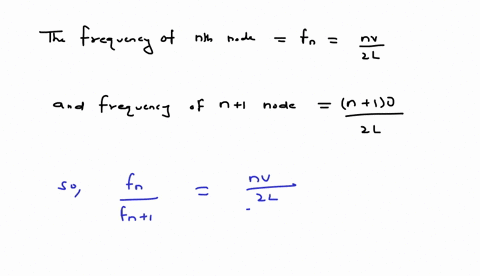 The frequency of nth node = fn = nv/2L
and frequency of n+1 node = (n+1)υ/2L
so, fn/fn+1 = nv/2L